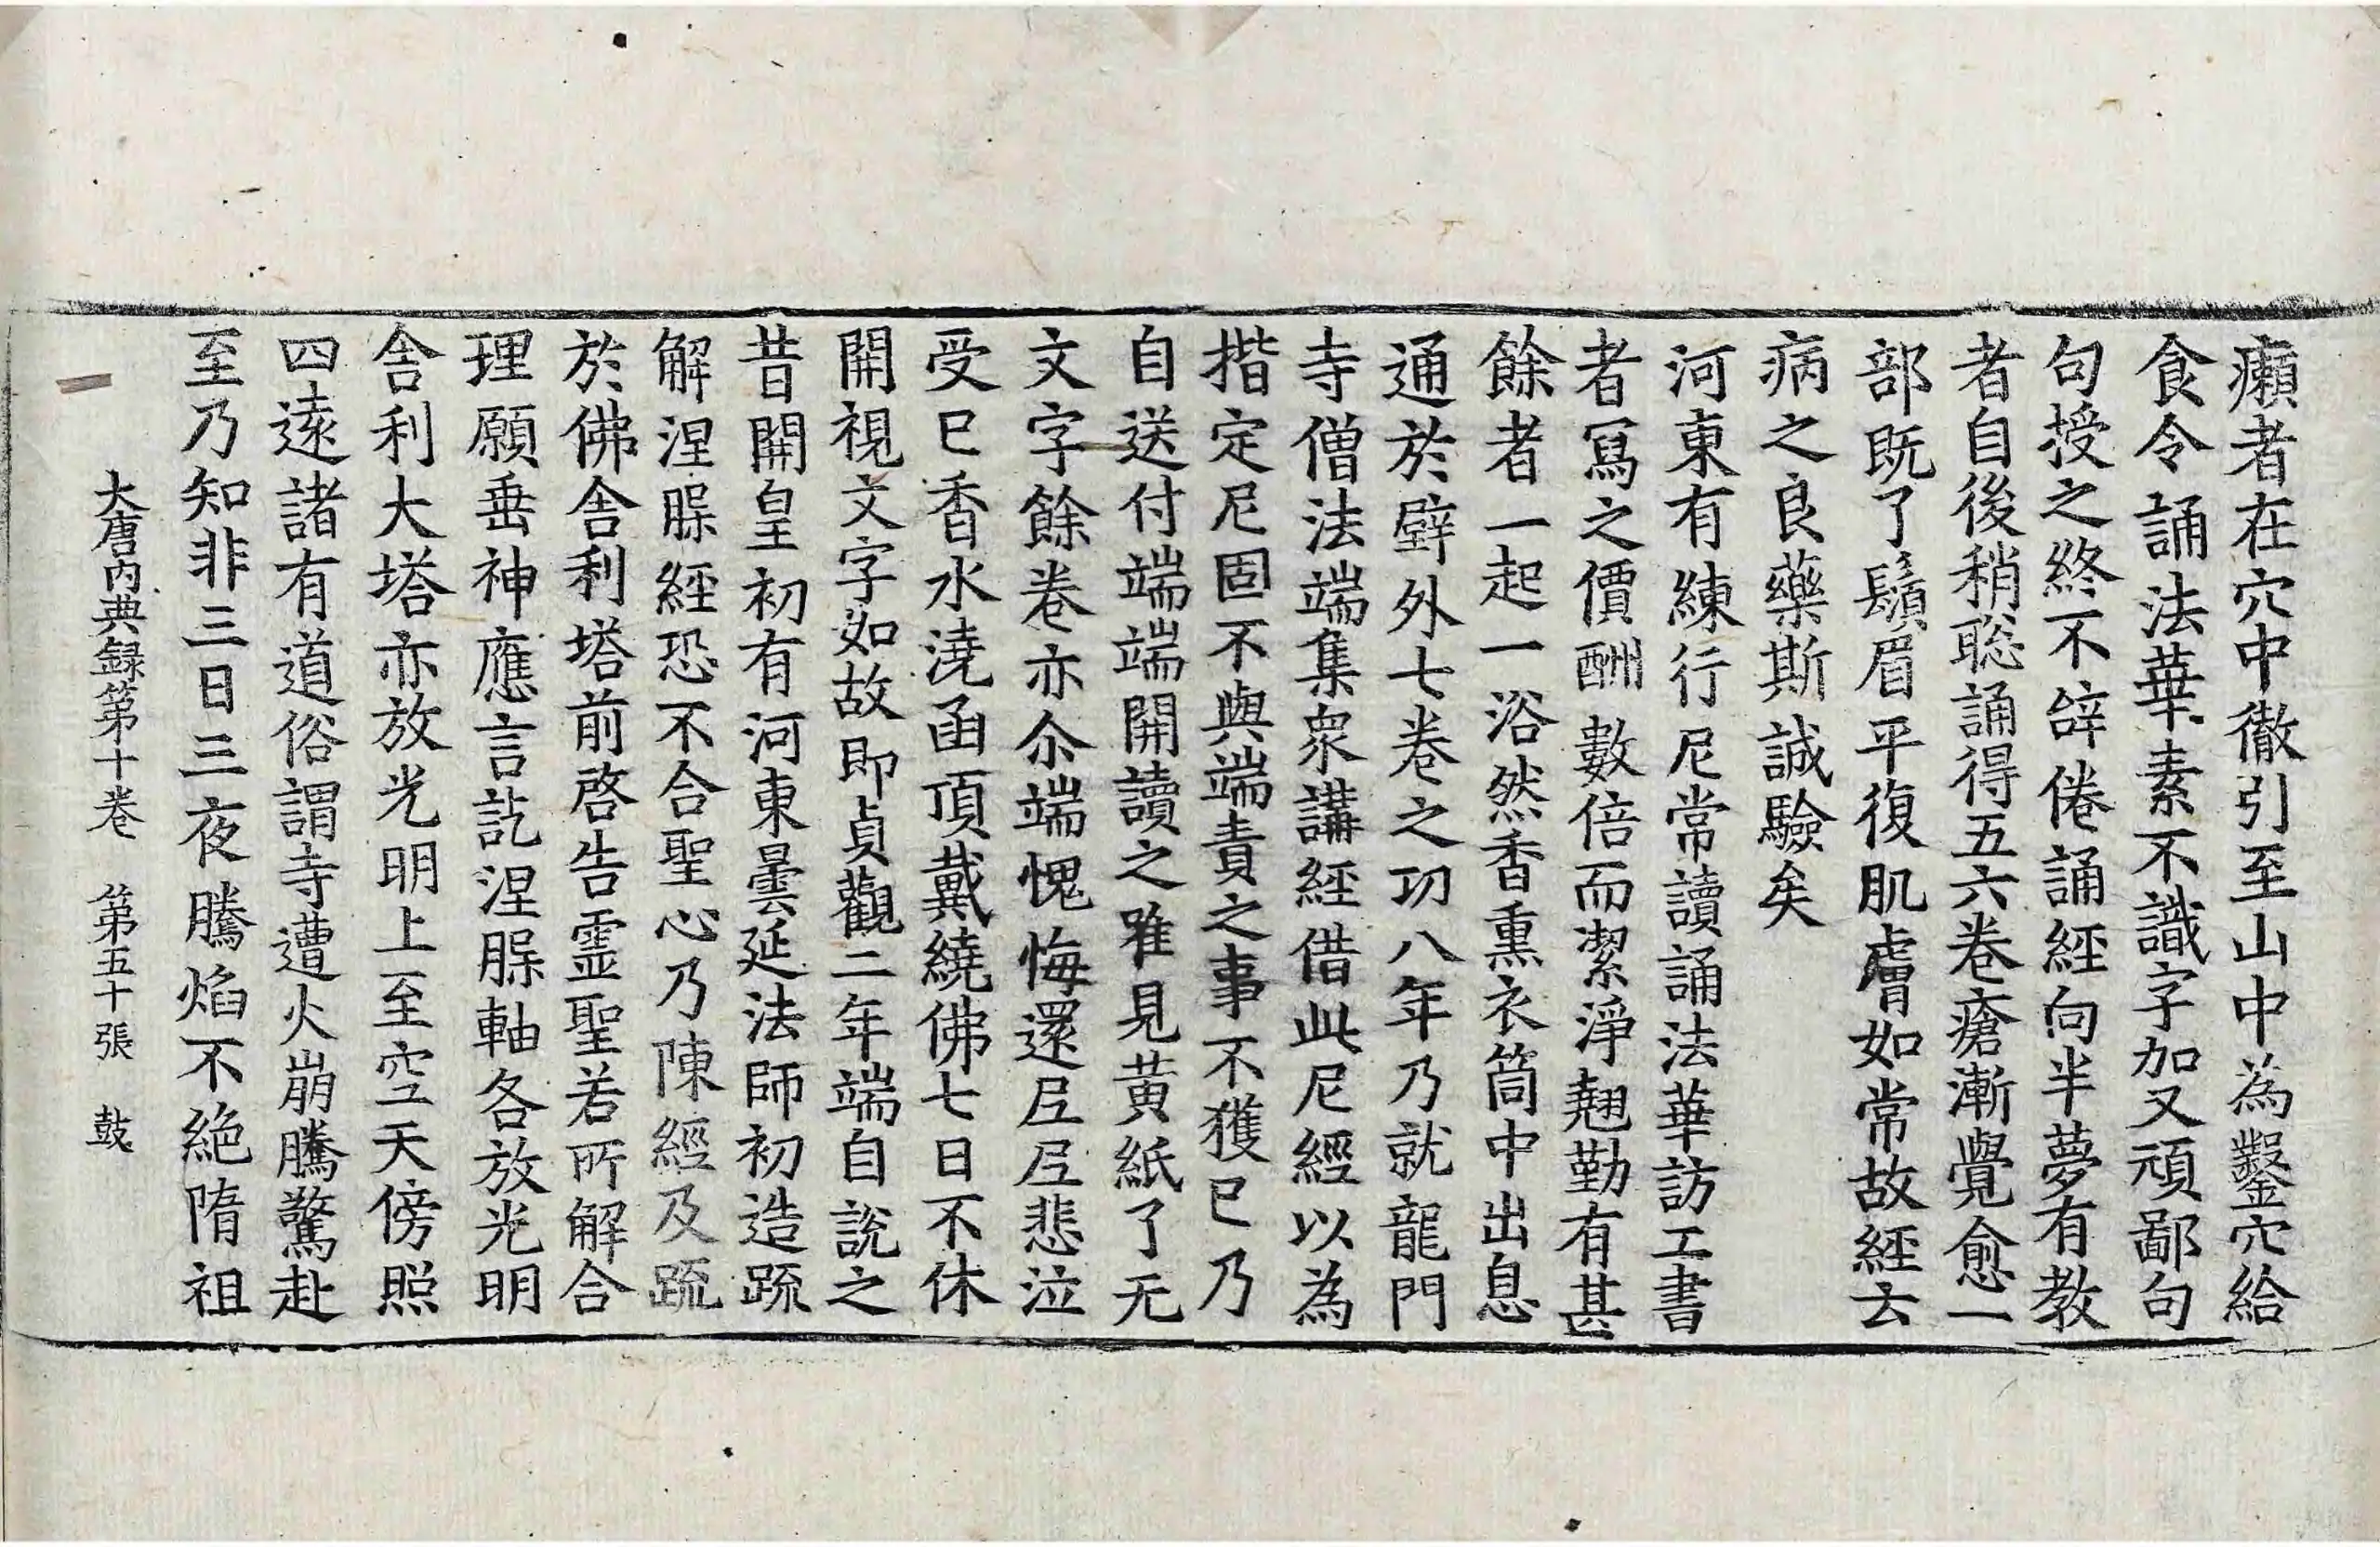 癩者在穴中徹引至山中為鑿穴給
食令誦法華素不識字加又頑鄙句
句授之終不辝倦誦經向半夢有教
者自後稍聡誦得五六卷瘡漸覺愈一
部既了鬚眉平復肌膚如常故經云
病之良藥斯誠驗矣
河東有練行尼常讀誦法華訪工書
者寫之價酬數倍而潔淨翹勤有甚
餘者一起一浴然香熏衣筒中出息
通於壁外七卷之功八年乃就龍門
寺僧法端集衆講經借此尼經以為
揩定尼固不與端責之事不獲已乃
自送付端端開讀之唯見黄紙了无
文字餘卷亦尒端愧悔還𡰱𡰱悲泣
受已香水澆函頂戴繞佛七日不休
開視文字如故即貞觀二年端自說之
昔開皇初有河東曇延法師初造䟽
解涅槃經恐不合聖心乃陳經及䟽
於佛舍利塔前啓告霊聖若所解合
理願垂神應言訖涅槃軸各放光明
舍利大塔亦放光明上至空天傍照
四遠諸有道俗謂寺遭火崩騰驚赴
至乃知非三日三夜騰焰不絶隋祖
大唐内典録第十卷　第五十張　鼓